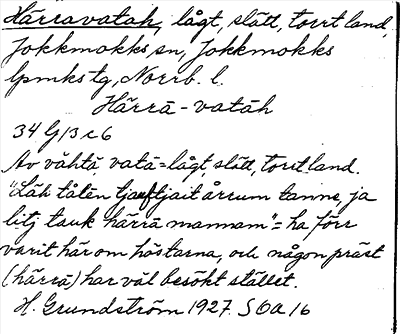 Härravatah, lågt, slätt, torrt land,
Jokkmokks sn, Jokkmokks
lpmkstg, Norrb. l.
Härrā-vatāh
34 G 13 c 6
Av vāhtā, vatā=lågt, slätt, torrt land.
"Läh tåtēn tjauftjait årrum tanne, ja
litj tauk härrā mannam"= ha förr
varit här om höstarna, och någon präst
(härrā) har väl besökt stället.
H. Grundström 1927. S 6 a 16